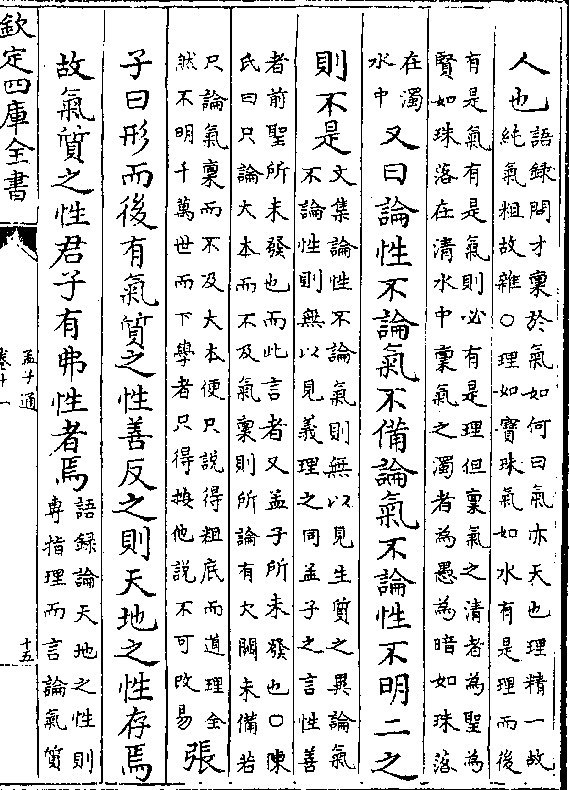 人也
語録問才稟於氣如何曰氣亦天也理精一故
純氣粗故雜○理如寳珠氣如水有是理而後
有是氣有是氣則必有是理但稟氣之清者為聖為
賢如珠落在清水中稟氣之濁者為愚為暗如珠落
在濁
水中
又曰論性不論氣不備論氣不論性不明二之
則不是
文集論性不論氣則無以見生質之異論氣
不論性則無以見義理之同孟子之言性善
者前聖所未發也而此言者又孟子所未發也○陳
氏曰只論大本而不及氣稟則所論有欠闕未備若
只論氣稟而不及大本便只說得粗底而道理全
然不明千萬世而下學者只得按他說不可改易
張
子曰形而後有氣質之性善反之則天地之性存焉
故氣質之性君子有弗性者焉
語録論天地之性則
専指理而言論氣質
欽定四庫全書
孟子通
卷十一
十五